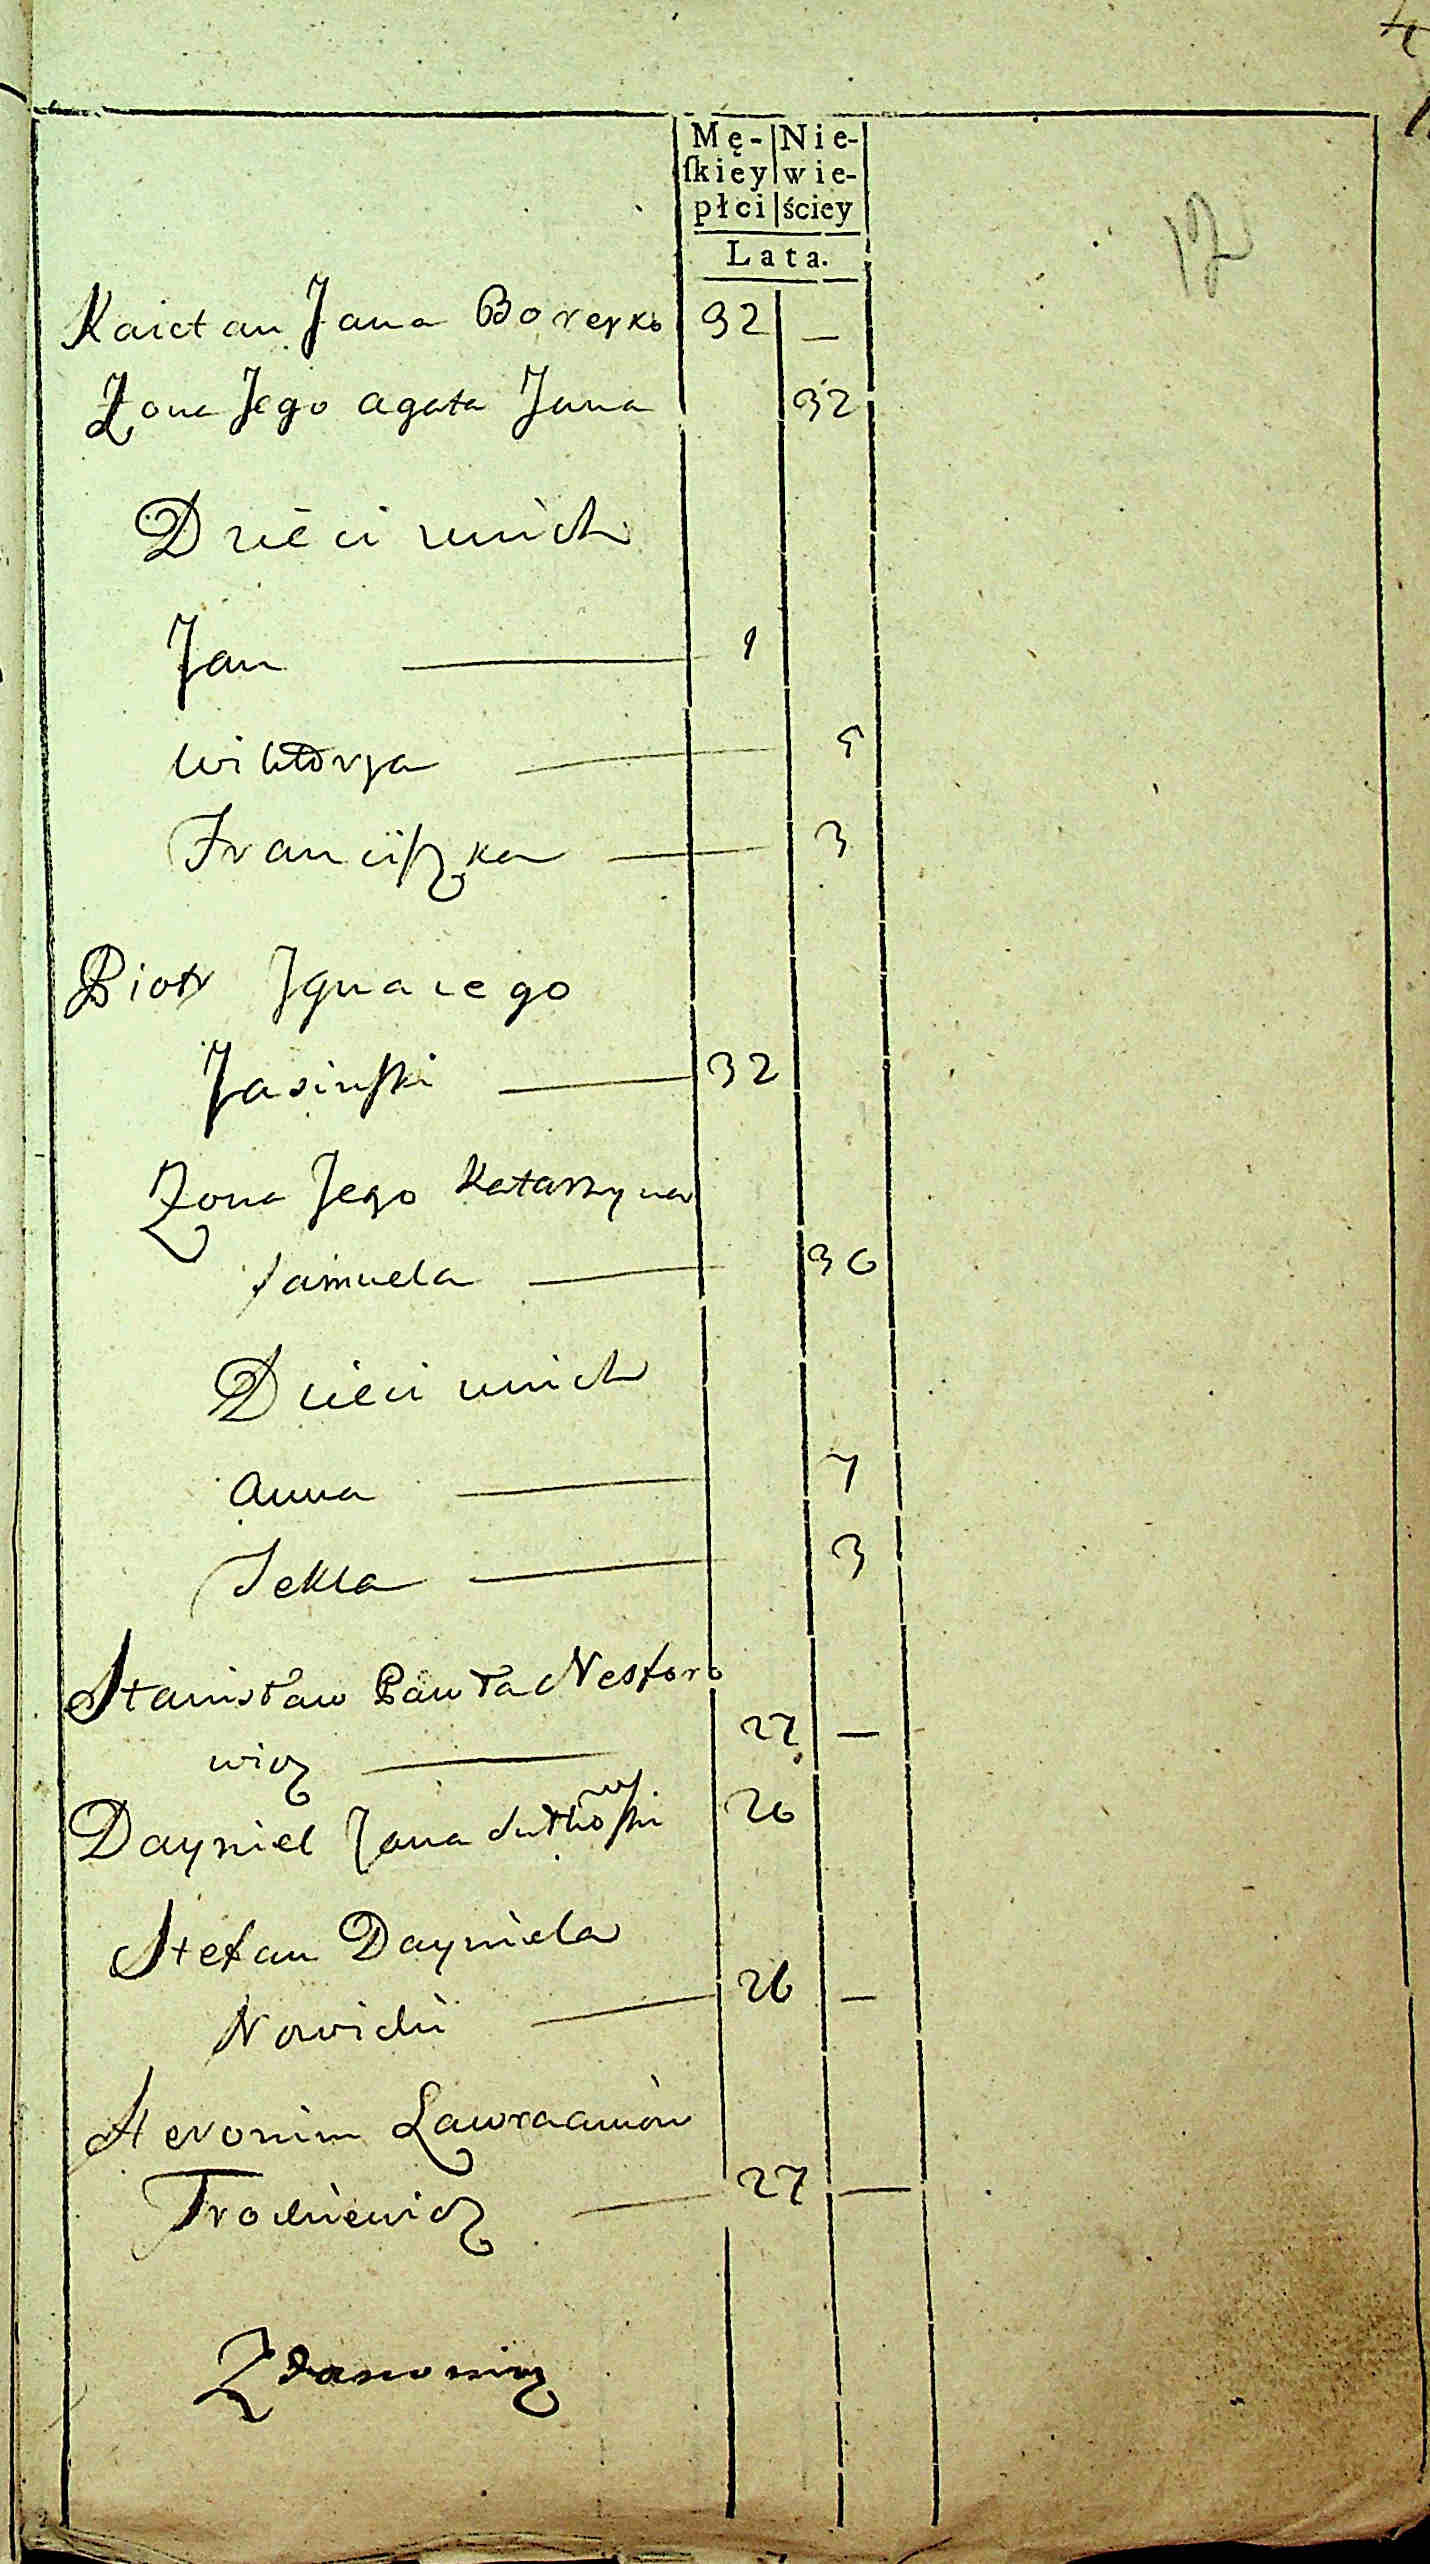 Mę- Nie-
ſkiey wie-
płci ściey
Lata.
Kaietan Jana Boreyko 32 —
Zona Jego agata Jana 32
Dzieci unich
Jan 1
wiktorya 5
Franciſzka 3
Piotr Jgnacego
Jasinſki 32
Zona Jego Katarzyna
samuela 36
Dzieci unich
anna 7
Tekla 3
Stanisław Pawła Nestoro
wicz 27 —
Dayniel Jana 26
Stefan Dayniela
Nowicki 26 —
Heronim
Trochiewicz 27 —
Zdanowicz